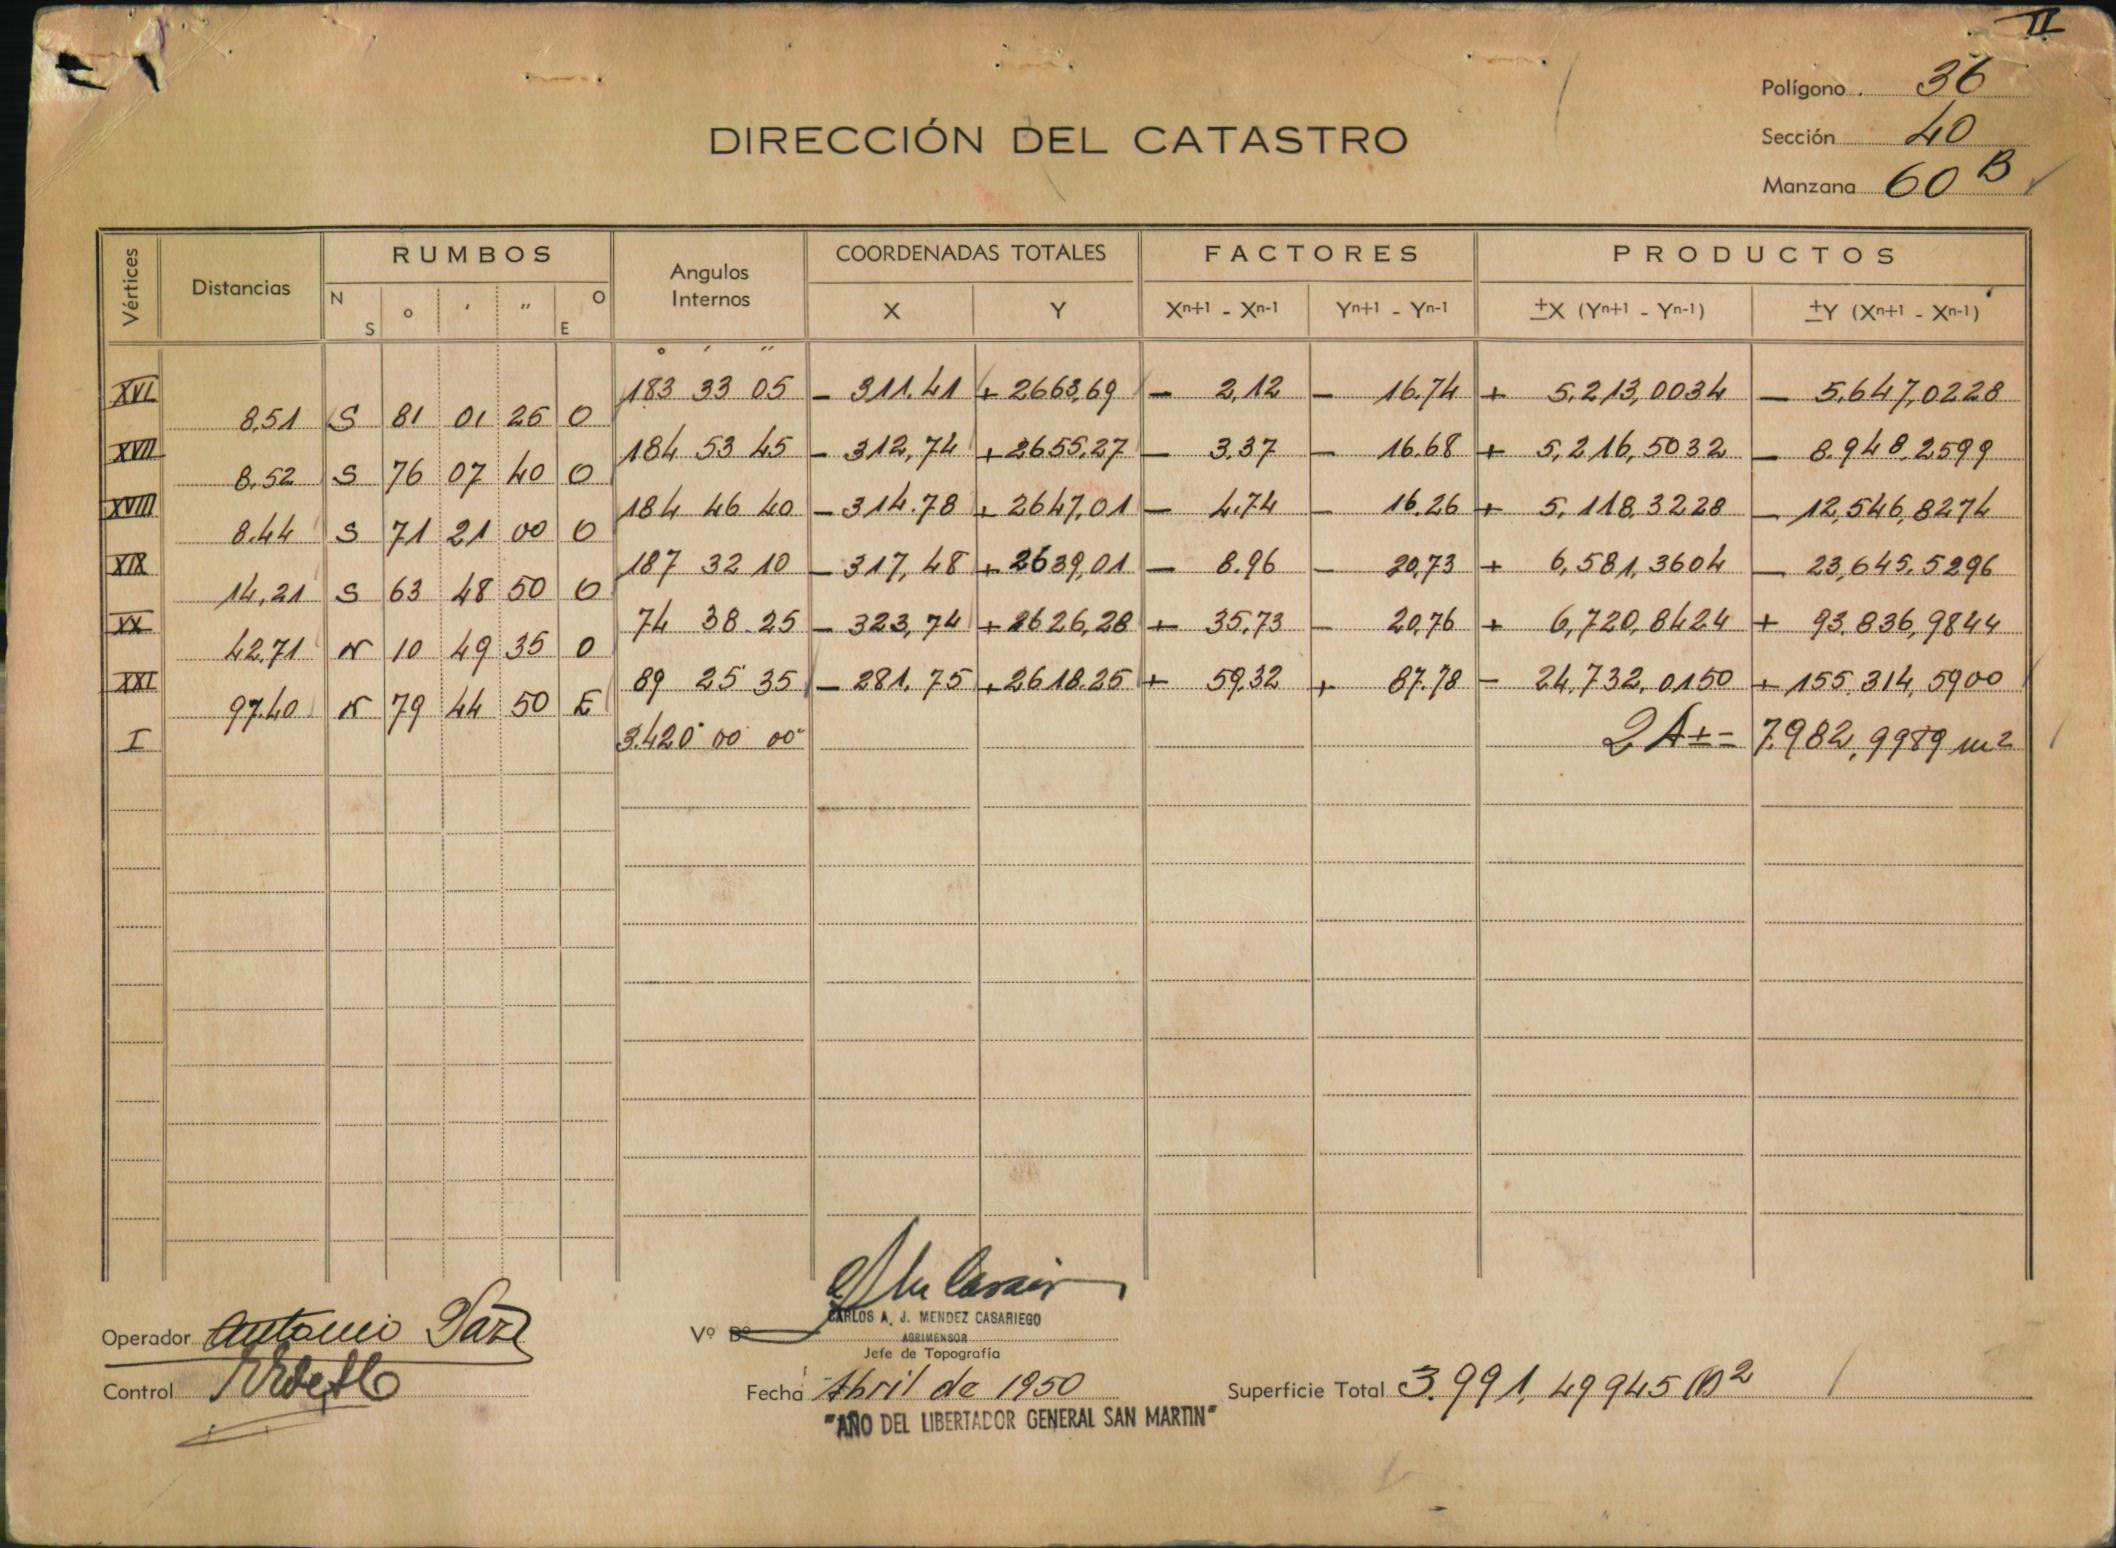 II
Polígono . 36
Sección 40
Manzana 60 B
DIRECCIÓN DEL CATASTRO
Vértices Distancias RUMBOS Angulos Internos COORDENADAS TOTALES FACTORES PRODUCTOS
N S ° ' " E O X Y Xn+1 - Xn-1 Yn+1 - Yn-1 ±X (Yn+1 - Yn-1) ±Y (Xn+1 - Xn-1)
° ' "
XVI 183 33 05 - 311.41 + 2663,69 - 2,12 - 16.74 + 5.213,0034 - 5.647,0228
8,51 S 81 01 26 O
XVII 184 53 45 - 312,74 + 2655,27 - 3,37 - 16.68 + 5,216,5032 - 8.948,2599
8,52 S 76 07 40 O
XVIII 184 46 40 - 314.78 + 2647,01 - 4.74 - 16.26 + 5,118,3228 - 12,546,8274
8.44 S 71 21 00 O
XIX 187 32 10 - 317,48 + 2639,01 - 8.96 - 20,73 + 6,581,3604 - 23,645,5296
14,21 S 63 48 50 O
XX 74 38 25 - 323,74 + 2626,28 + 35,73 - 20,76 + 6,720,8424 + 93,836,9844
42,71 N 10 49 35 O
XXI 89 25 35 - 281,75 + 2618.25 + 59,32 + 87.78 - 24,732,0150 + 155,314,5900
97.40 N 79 44 50 E
I 3.420° 00 00" 2A±= 7.982,9989 m2
Operador Antonio Paz
Control
Vº Bº
CARLOS A. J. MENDEZ CASARIEGO
AGRIMENSOR
Jefe de Topografía
Fecha Abril de 1950
Superficie Total 3.991,49945 m2
"AÑO DEL LIBERTADOR GENERAL SAN MARTIN"